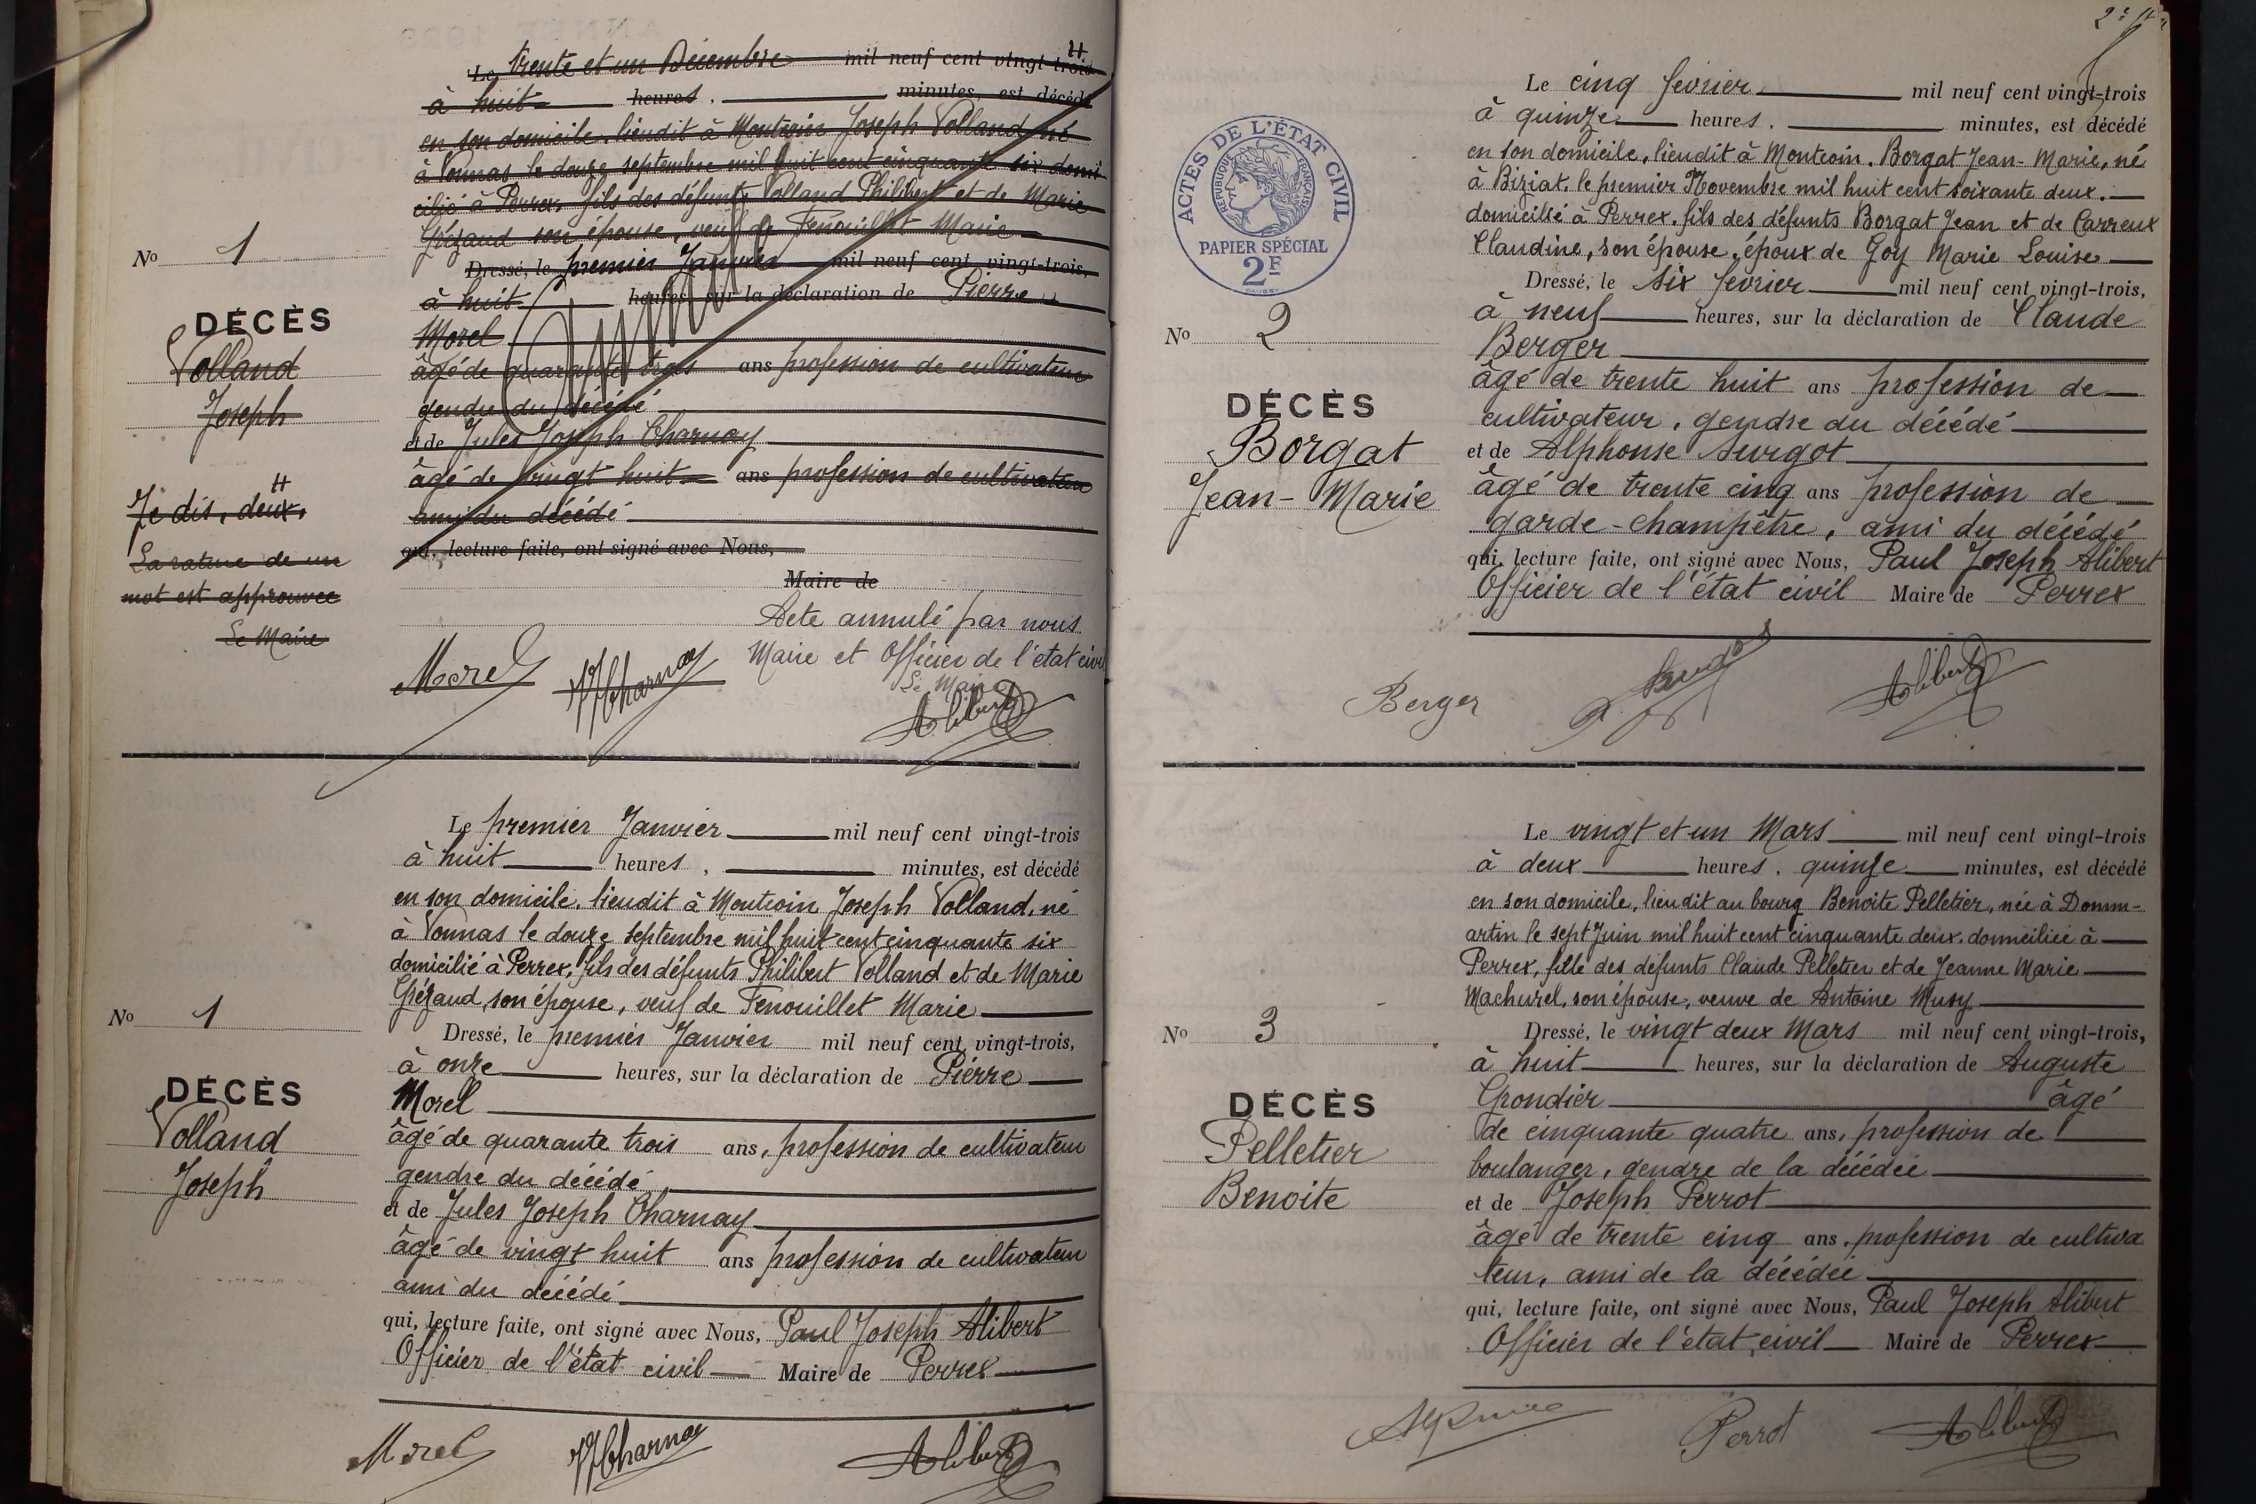 Le trente et un Décembre mil neuf cent vingt-trois H
à huit heures, minutes, est décédé
en son domicile, lieudit à Montcoin Joseph Volland né
à Vonnas le douze septembre mil huit cent cinquante six domi
cilié à Perrex, fils des défunts Volland Philibert et de Marie
Grézaud son épouse, veuf de Fenouillet Marie
Dressé, le premier Janvier mil neuf cent vingt-trois,
à huit heures, sur la déclaration de Pierre
Morel
âgé de quarante trois ans profession de cultivateur
gendre du décédé
et de Jules Joseph Charnay
âgé de vingt huit ans profession de cultivateur
ami du décédé
qui, lecture faite, ont signé avec Nous,
Maire de
Acte annulé par nous
Maire et Officier de l'état civil
Le Maire
Morel JJCharnay Alibert
No 1
DÉCÈS
Volland
Joseph
H
Je dis, deux,
La rature de un
mot est approuvée
Le Maire
Le premier Janvier mil neuf cent vingt-trois
à huit heures, minutes, est décédé
en son domicile, lieudit à Montcoin Joseph Volland, né
à Vonnas le douze septembre mil huit cent cinquante six
domicilié à Perrex, fils des défunts Philibert Volland et de Marie
Grézaud, son épouse, veuf de Fenouillet Marie
Dressé, le premier Janvier mil neuf cent vingt-trois,
à onze heures, sur la déclaration de Pierre
Morel
âgé de quarante trois ans, profession de cultivateur
gendre du décédé
et de Jules Joseph Charnay
âgé de vingt huit ans profession de cultivateur
ami du décédé
qui, lecture faite, ont signé avec Nous, Paul Joseph Alibert
Officier de l'état civil Maire de Perrex
Morel JJCharnay Alibert
No 1
DÉCÈS
Volland
Joseph
ACTES DE L'ÉTAT CIVIL
RÉPUBLIQUE FRANÇAISE
PAPIER SPÉCIAL
2F
Le cinq février mil neuf cent vingt-trois
à quinze heures, minutes, est décédé
en son domicile, lieudit à Montcoin, Borgat Jean-Marie, né
à Biziat, le premier Novembre mil huit cent soixante deux,
domicilié à Perrex, fils des défunts Borgat Jean et de Carreux
Claudine, son épouse, époux de Goy Marie Louise
Dressé, le six février mil neuf cent vingt-trois,
à neuf heures, sur la déclaration de Claude
Berger
âgé de trente huit ans profession de
cultivateur, gendre du décédé
et de Alphonse Surgot
âgé de trente cinq ans profession de
garde-champêtre, ami du décédé
qui, lecture faite, ont signé avec Nous, Paul Joseph Alibert
Officier de l'état civil Maire de Perrex
Berger Alibert
No 2
DÉCÈS
Borgat
Jean-Marie
Le vingt et un Mars mil neuf cent vingt-trois
à deux heures, quinze minutes, est décédé
en son domicile, lieudit au bourg Benoite Pelletier, née à Domm-
artin le sept Juin mil huit cent cinquante deux, domiciliée à
Perrex, fille des défunts Claude Pelletier et de Jeanne Marie
Machurel, son épouse, veuve de Antoine Musy
Dressé, le vingt deux Mars mil neuf cent vingt-trois,
à huit heures, sur la déclaration de Auguste
Grondier âgé
de cinquante quatre ans, profession de
boulanger, gendre de la décédée
et de Joseph Perrot
âgé de trente cinq ans, profession de cultiva
teur, ami de la décédée
qui, lecture faite, ont signé avec Nous, Paul Joseph Alibert
Officier de l'état civil Maire de Perrex
Perrot Alibert
No 3
DÉCÈS
Pelletier
Benoite